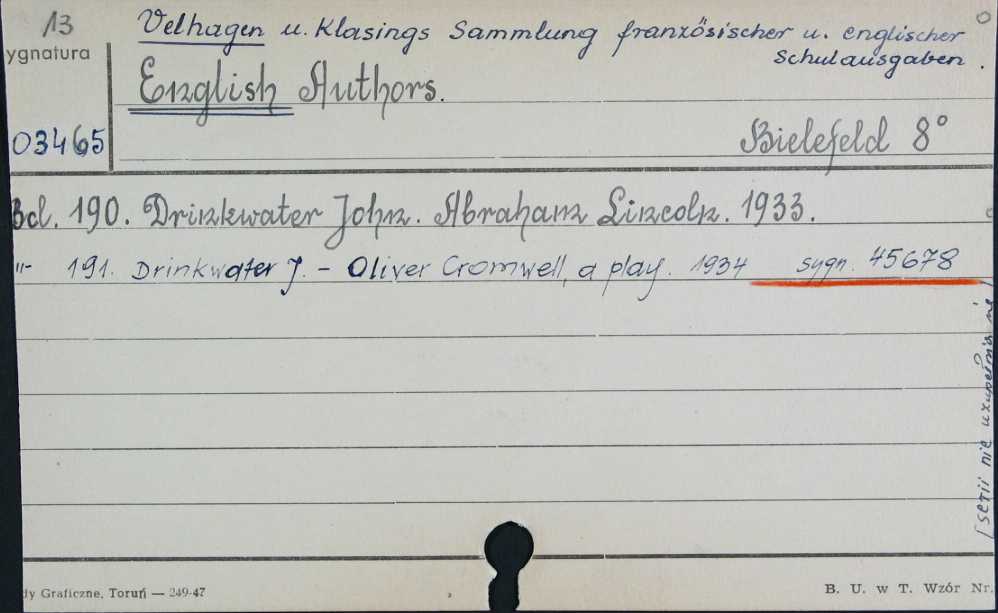 13
Velhagen u. Klasings Sammlung französischer u. englischer
Schulausgaben.
ygnatura
English Authors.
03465
Bielefeld 8°
Bd. 190. Drinkwater John. Abraham Lincoln. 1933.
-"- 191. Drinkwater J. - Oliver Cromwell, a play. 1934 sygn. 45678
(serii nie uzupełnia się)
dy Graficzne, Toruń — 249-47
B. U. w T. Wzór Nr.